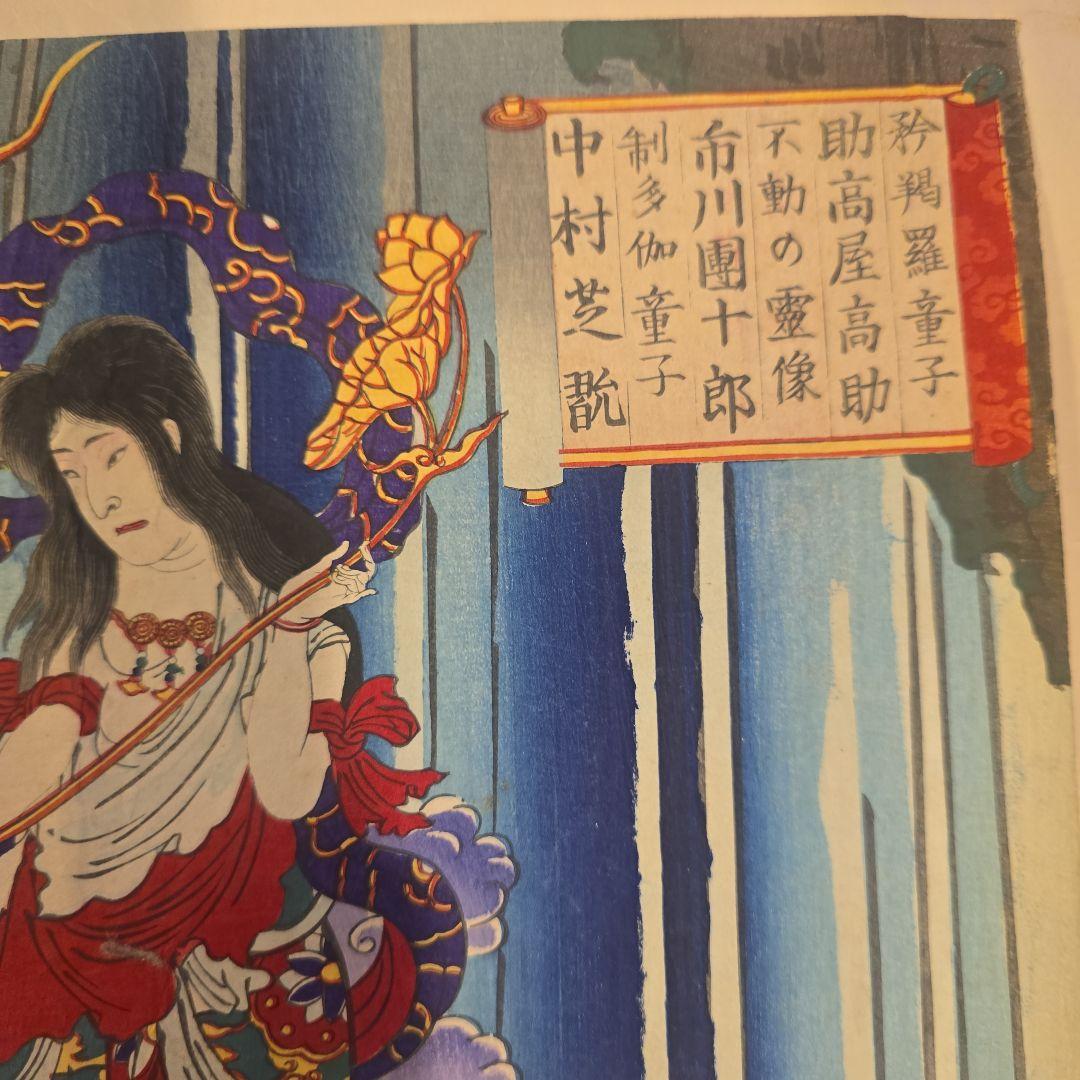 矜羯羅童子
助高屋高助
不動の靈像
市川團十郎
制多伽童子
中村芝翫